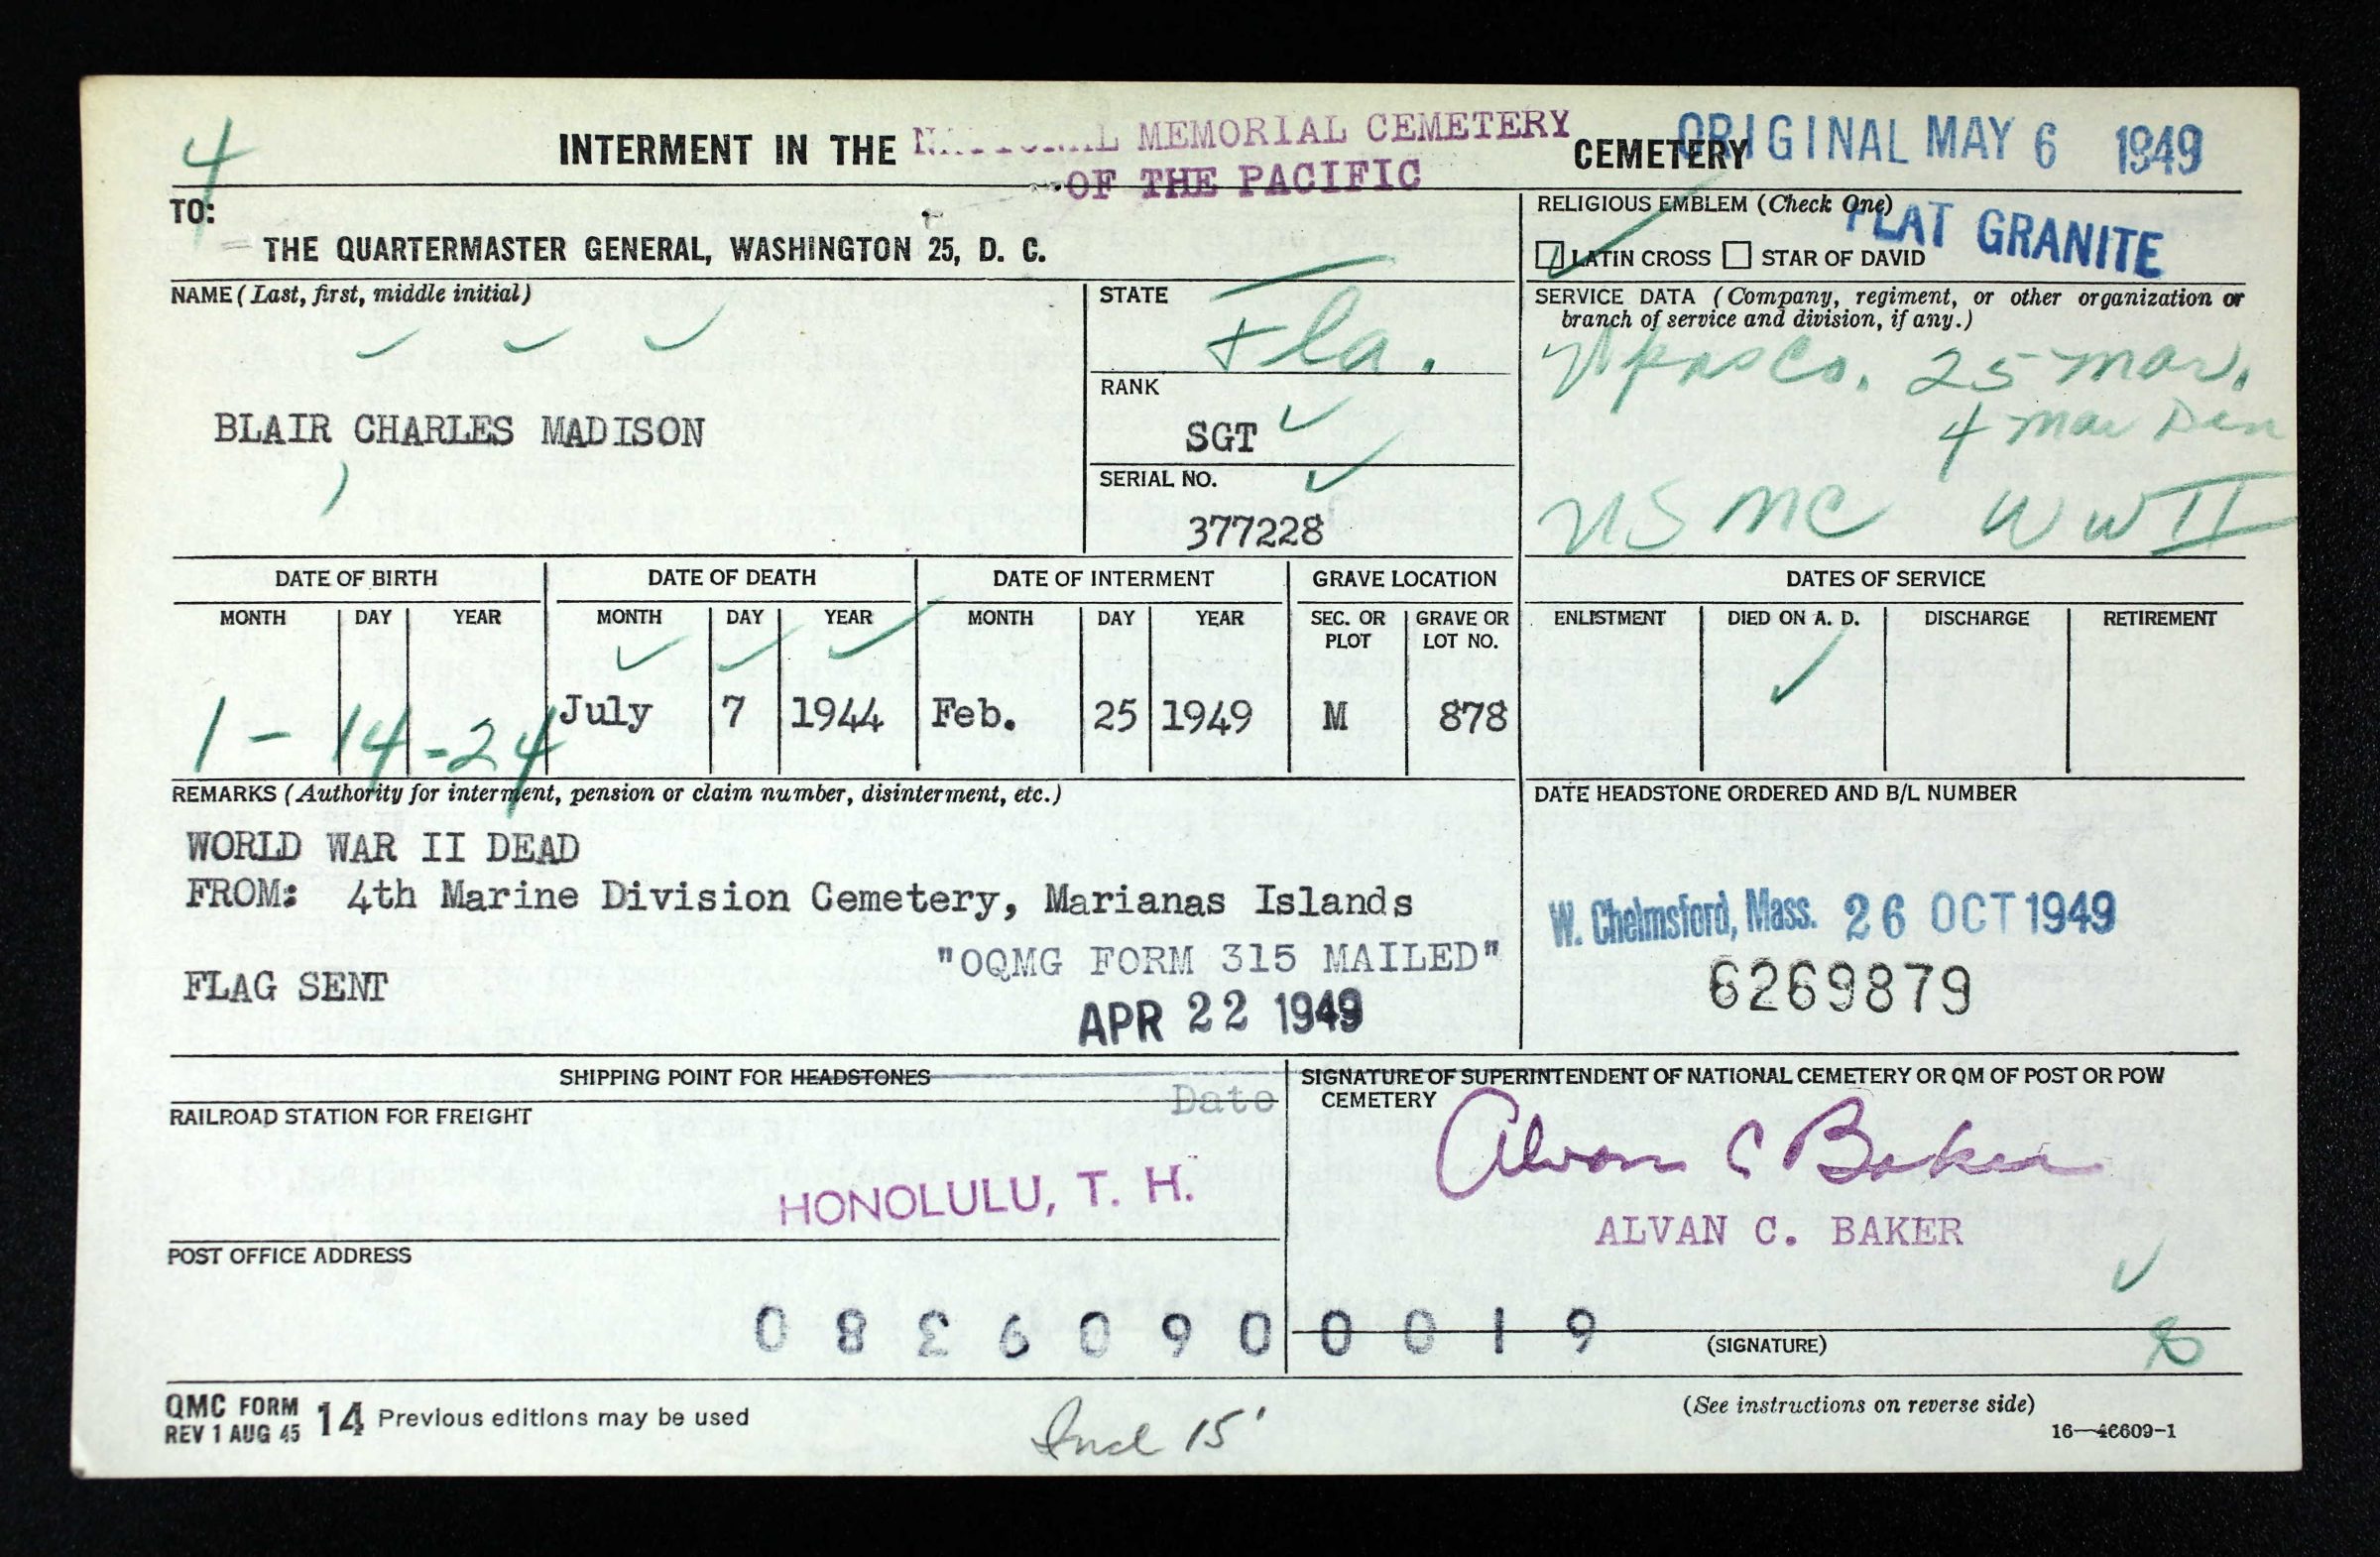 4
INTERMENT IN THE NATIONAL MEMORIAL CEMETERY CEMETERY ORIGINAL MAY 6 1949
OF THE PACIFIC
TO:
THE QUARTERMASTER GENERAL, WASHINGTON 25, D. C.
RELIGIOUS EMBLEM (Check One)
FLAT GRANITE
LATIN CROSS STAR OF DAVID
NAME (Last, first, middle initial)
BLAIR CHARLES MADISON
STATE
Fla.
RANK
SGT
SERIAL NO.
377228
SERVICE DATA (Company, regiment, or other organization or
branch of service and division, if any.)
Co. 25 Mar.
4 Mar
USMC WW II
DATE OF BIRTH DATE OF DEATH DATE OF INTERMENT GRAVE LOCATION DATES OF SERVICE
MONTH DAY YEAR MONTH DAY YEAR MONTH DAY YEAR SEC. OR PLOT GRAVE OR LOT NO. ENLISTMENT DIED ON A. D. DISCHARGE RETIREMENT
1-14-24 July 7 1944 Feb. 25 1949 M 878
REMARKS (Authority for interment, pension or claim number, disinterment, etc.)
WORLD WAR II DEAD
FROM: 4th Marine Division Cemetery, Marianas Islands
"OQMG FORM 315 MAILED"
FLAG SENT
APR 22 1949
DATE HEADSTONE ORDERED AND B/L NUMBER
W. Chelmsford, Mass. 26 OCT 1949
6269879
SHIPPING POINT FOR HEADSTONES
Date
RAILROAD STATION FOR FREIGHT
HONOLULU, T. H.
POST OFFICE ADDRESS
SIGNATURE OF SUPERINTENDENT OF NATIONAL CEMETERY OR QM OF POST OR POW
CEMETERY
Alvan C Baker
ALVAN C. BAKER
(SIGNATURE)
QMC FORM 14 Previous editions may be used
REV 1 AUG 45
15'
(See instructions on reverse side)
16—46609-1